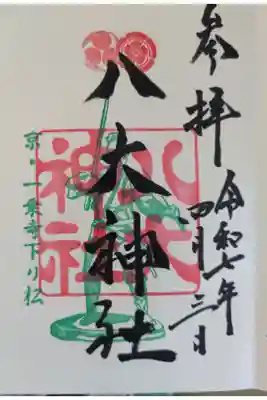 参拝
令和七年
四月三日
八大神社
八大
神社
京・一乗寺下り松